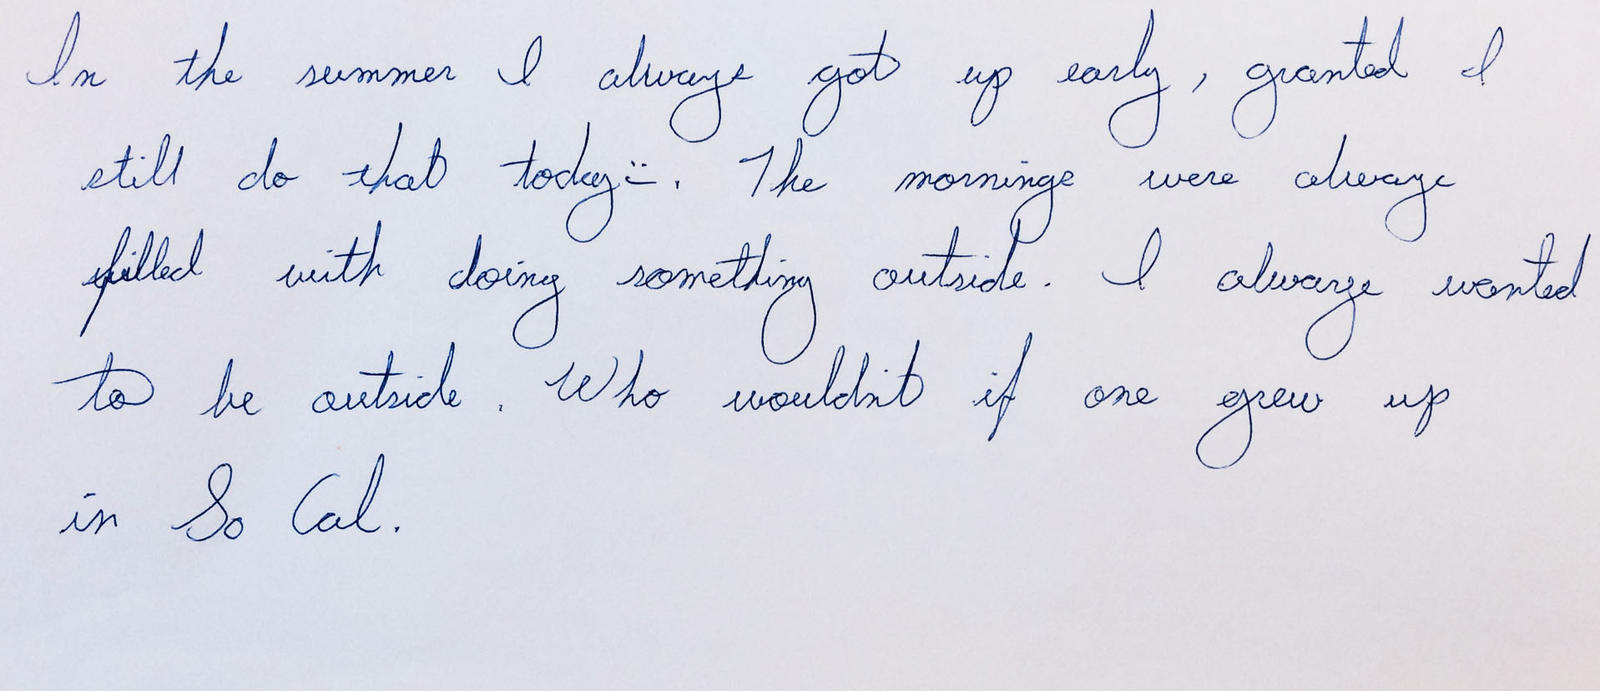 In the summer I always got up early, granted I
still do that today :). The mornings were always
filled with doing something outside. I always wanted
to be outside. Who wouldn't if one grew up
in So Cal.